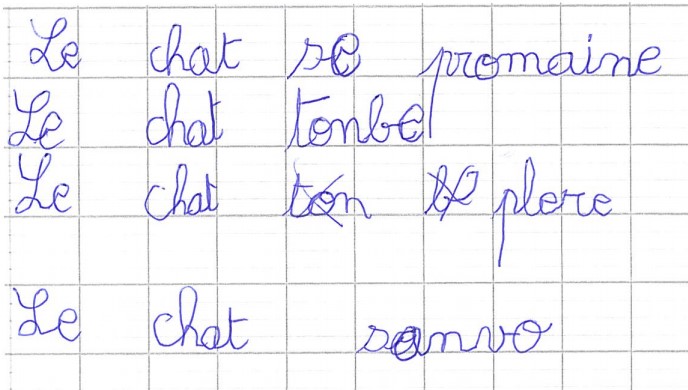 Le chat se promaine
Le chat tonbe
Le chat plere
Le chat sanvo